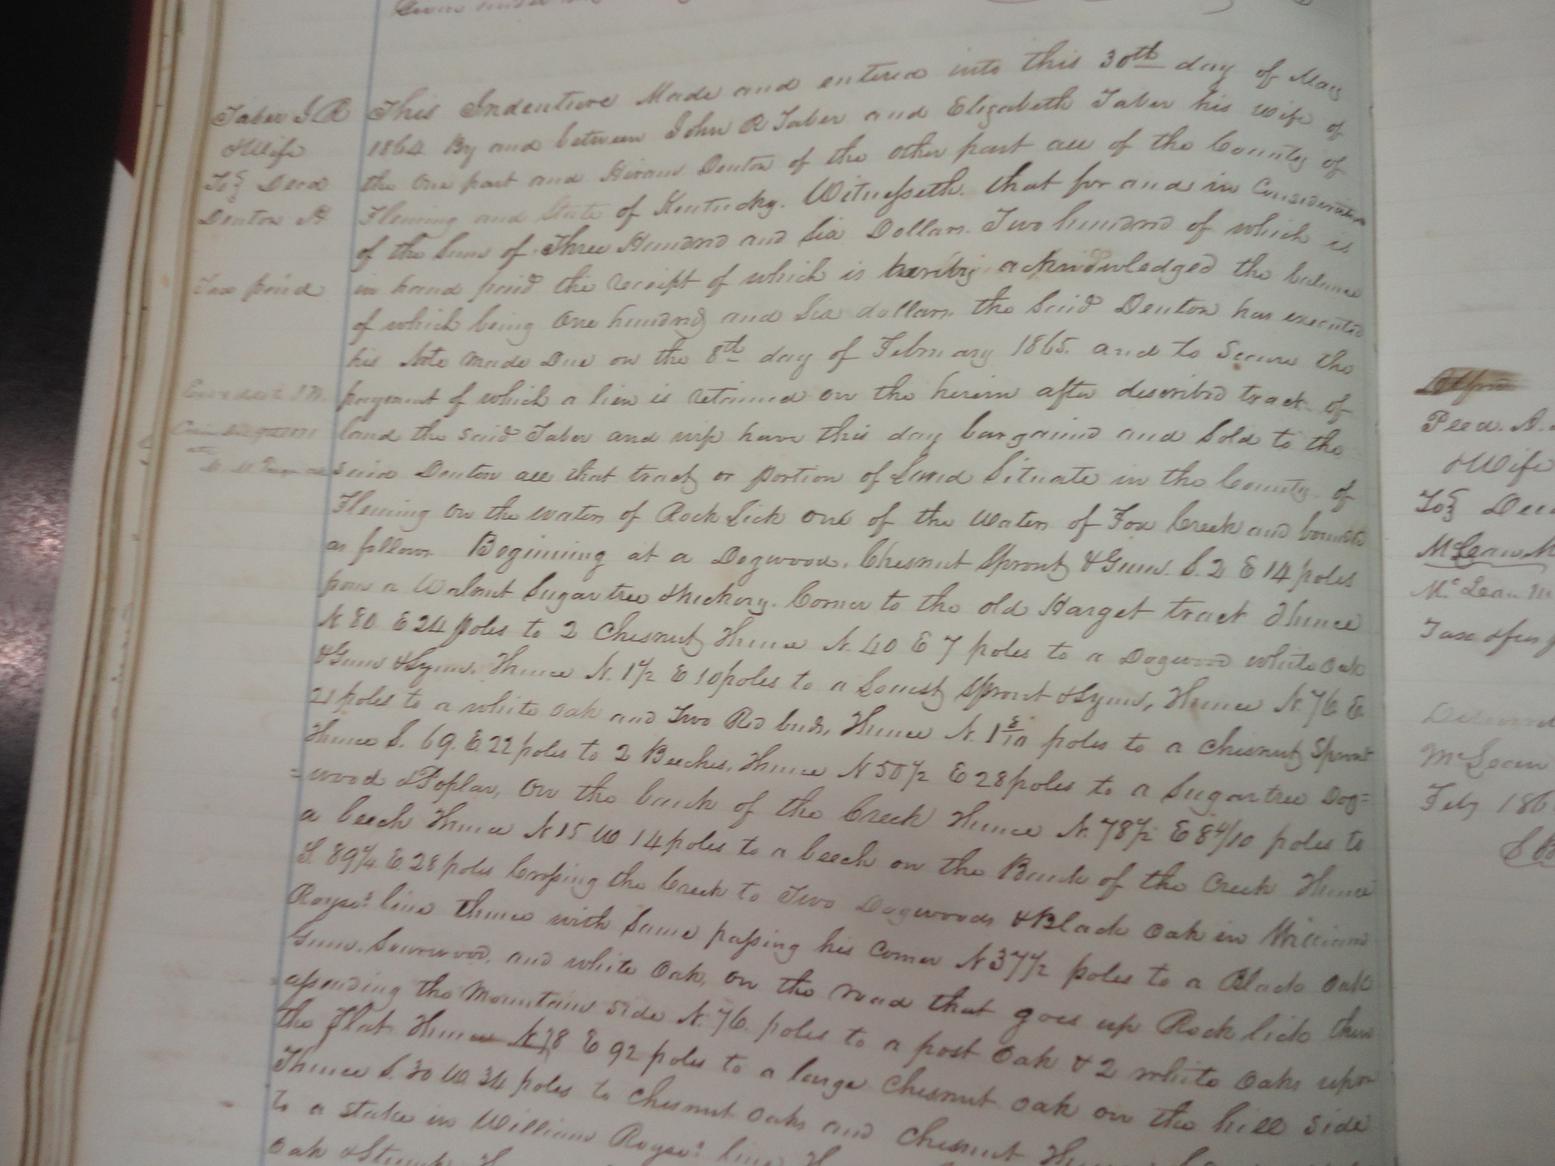 Taber J R
& Wife
To} Deed
Denton H
Tax paid
This Indenture Made and entered into this 30th day of May
1864 By and between John R Taber and Elizabeth Taber his wife of
the One part and Hiram Denton of the other part all of the County of
Fleming and State of Kentucky. Witnesseth. that for and in Consideration
of the Sum of Three Hundred and Six Dollars. Two hundred of which is
in hand paid the receipt of which is hereby acknowledged the balance
of which being One hundred and Six dollars. the Said Denton has executed
his Note made Due on the 8th day of February 1865. and to Secure the
payment of which a lien is retained on the herein after described tract of
land the said Taber and wife have this day bargained and Sold to the
said Denton all that tract or portion of Land Situate in the County of
Fleming On the waters of Rock Lick one of the Waters of Fox Creek and bounded
as follows Beginning at a Dogwood, Chesnut Sprout & Gum. S. 2 E 14 poles
from a Walnut Sugartree & hickory. Corner to the old Harget tract Thence
N 80 E 24 poles to 2 Chesnuts Thence N. 40 E 7 poles to a Dogwood white Oak
& Gum & Lynn. Thence N. 1½ E 10 poles to a Locust Sprout & Lynn, Thence N. 76 E.
21 poles to a white Oak and Two Red buds, Thence N. 1 poles to a Chesnut Sprout
Thence S. 69. E 22 poles to 2 Beeches, Thence N 50½ E 28 poles to a Sugartree Dog=
=wood & Poplar, On the bank of the Creek Thence N. 78½ E 8 4/10 poles to
a beech Thence N 15 W 14 poles to a beech on the Bank of the Creek Thence
S. 89¼ E. 28 poles Crossing the Creek to Two Dogwoods & Black Oak in William
Royse's line thence with Same passing his Corner N 37½ poles to a Black Oak
Gum, Sourwood, and white Oak, on the road that goes up Rock lick then
assending the Mountain side N. 76. poles to a post Oak & 2 white Oaks upon
the flat Thence N 78 E 92 poles to a large Chesnut Oak on the hill side
Thence S. 30 W 34 poles to Chesnut Oaks and Chesnut
to a stake in William Royse's line
Oak & Stump
Peed. A.
& Wife
To} Deed
McLean M
McLean M
Tax & fee
McLean
Feby 186